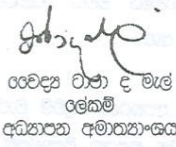 වෛද්‍ය ටාණ ද මැල්
ලේකම්
අධ්‍යාපන අමාත්‍යාංශය